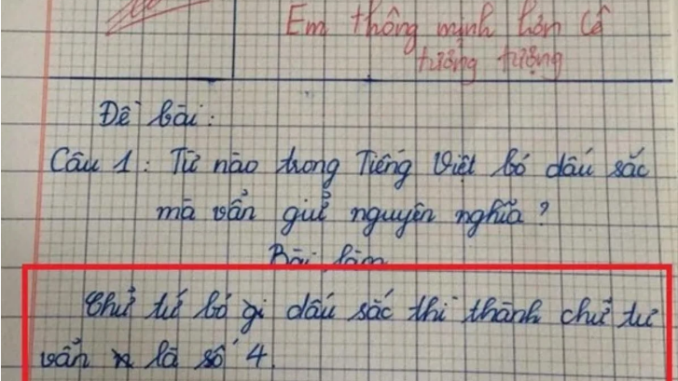 Em thông minh hơn Cô
tưởng tượng
Đề bài:
Câu 1: Từ nào trong Tiếng Việt bỏ dấu sắc
mà vẩn giử nguyên nghĩa?
Bài làm
Chử tứ bỏ đi dấu sắc thì thành chử tư
vẩn là số 4.